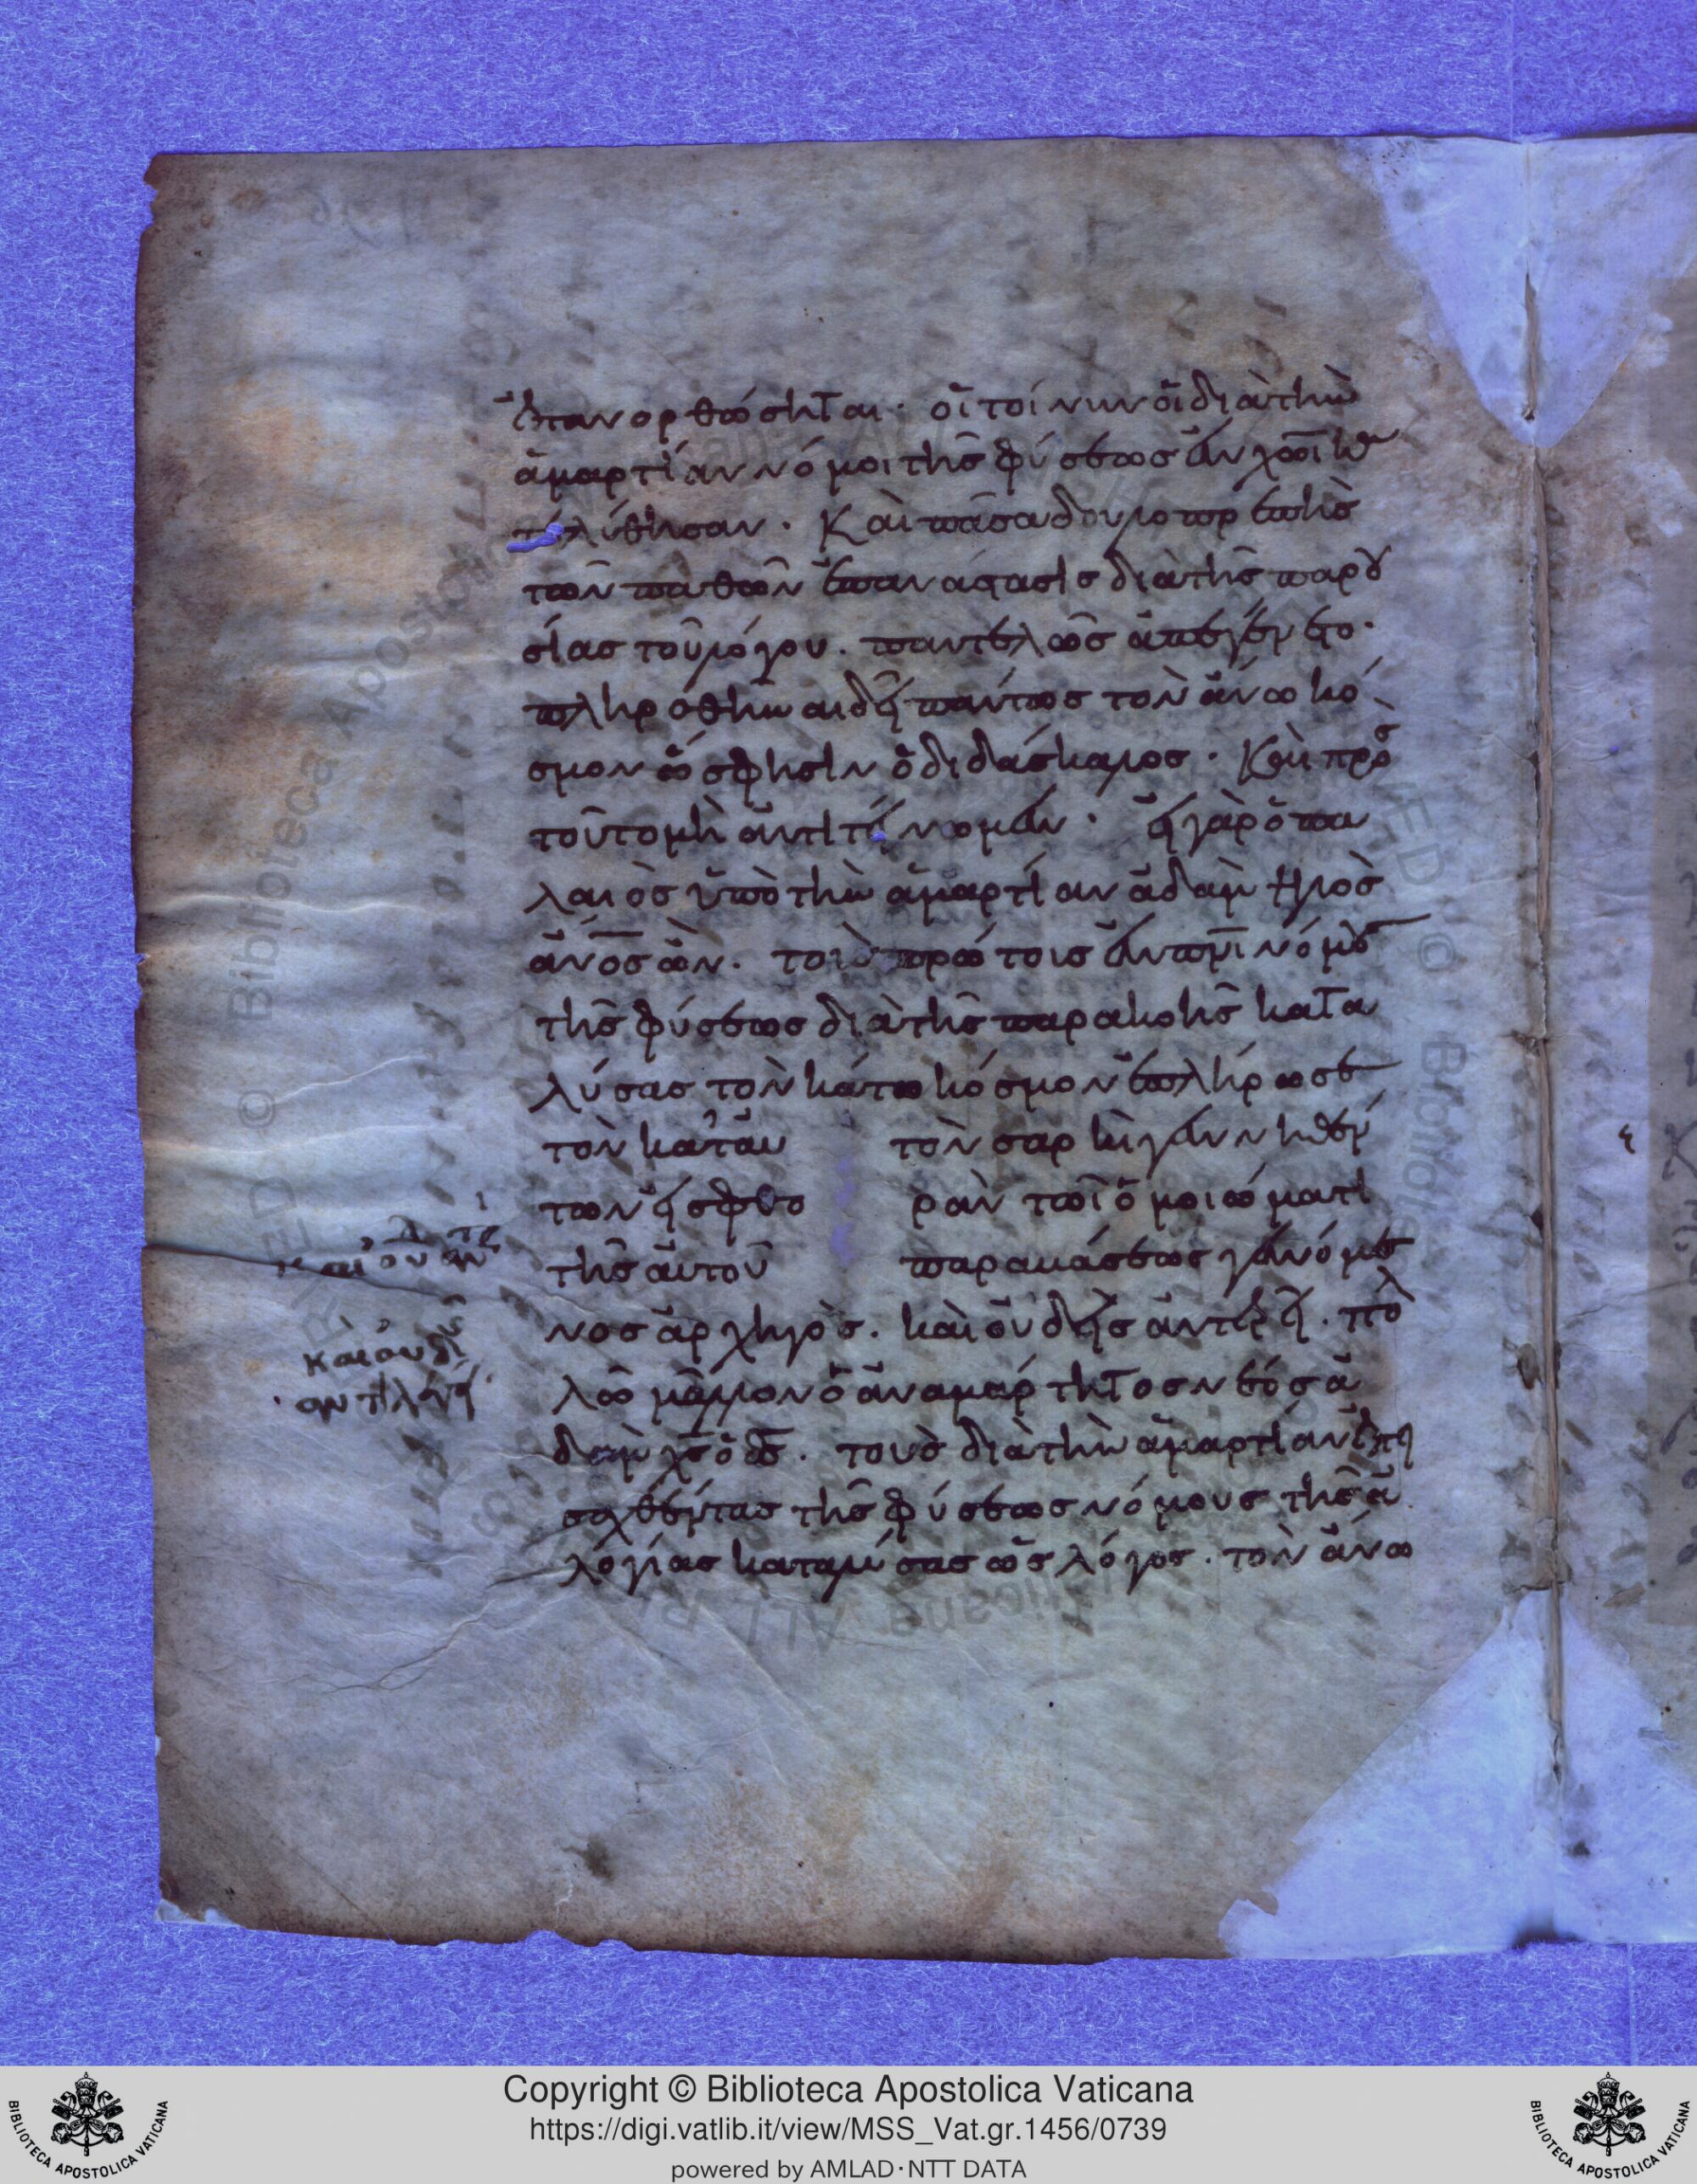 ἐπανορθώσηται· οἱ τοίνυν οἱ διὰ τὴν
ἁμαρτίαν νόμοι τῆς φύσεως ἐν χῶι ιυ
λύθησαν. Καὶ πᾶσα δουλοπρεπὴς
τῶν παθῶν ἐπανάστασις διὰ τῆς παρου
σίας τοῦ λόγου. παντελῶς ἀπεγένετο·
πληρωθῆναι δεῖ πάντως τὸν ἄνω κό
σμον ὥς φησὶν ὁ διδάσκαλος. Καὶ πρὸς
τοῦτο μὴ ἀντιτείνωμεν. εἰ γὰρ ὁ πα
λαιὸς ὑπὸ τὴν ἁμαρτίαν ἀδὰμ ψιλὸς
ἄνος ὢν. τοὺς πρώτους ἐν πνι νόμους
τῆς φύσεως διὰ τῆς παρακοῆς κατα
λύσας τὸν κάτω κόσμον ἐπλήρωσε
τῶν κατ' αυ τὸν σαρκὶ γεννηθέν
των εἰς φθο ρὰν τῶι ὁμοιώματι
τῆς αὐτοῦ παραβάσεως γενόμε
νος ἀρχηγὸς. καὶ οὐδεὶς ἀντερεῖ. πολ
λῶ μᾶλλον ὁ ἀναμάρτητος νέος ἀ
δὰμ χς ὁ θς. τοὺς διὰ τὴν ἁμαρτίαν ἐπει
σαχθέντας τῆς φύσεως νόμους τῆς ἀ
λογίας καταλύσας ὡς λόγος. τὸν ἄνω
καὶ οὐδεὶς
ἀντιλέγει
Copyright © Biblioteca Apostolica Vaticana
https://digi.vatlib.it/view/MSS_Vat.gr.1456/0739
powered by AMLAD·NTT DATA
BIBLIOTECA APOSTOLICA VATICANA
BIBLIOTECA APOSTOLICA VATICANA